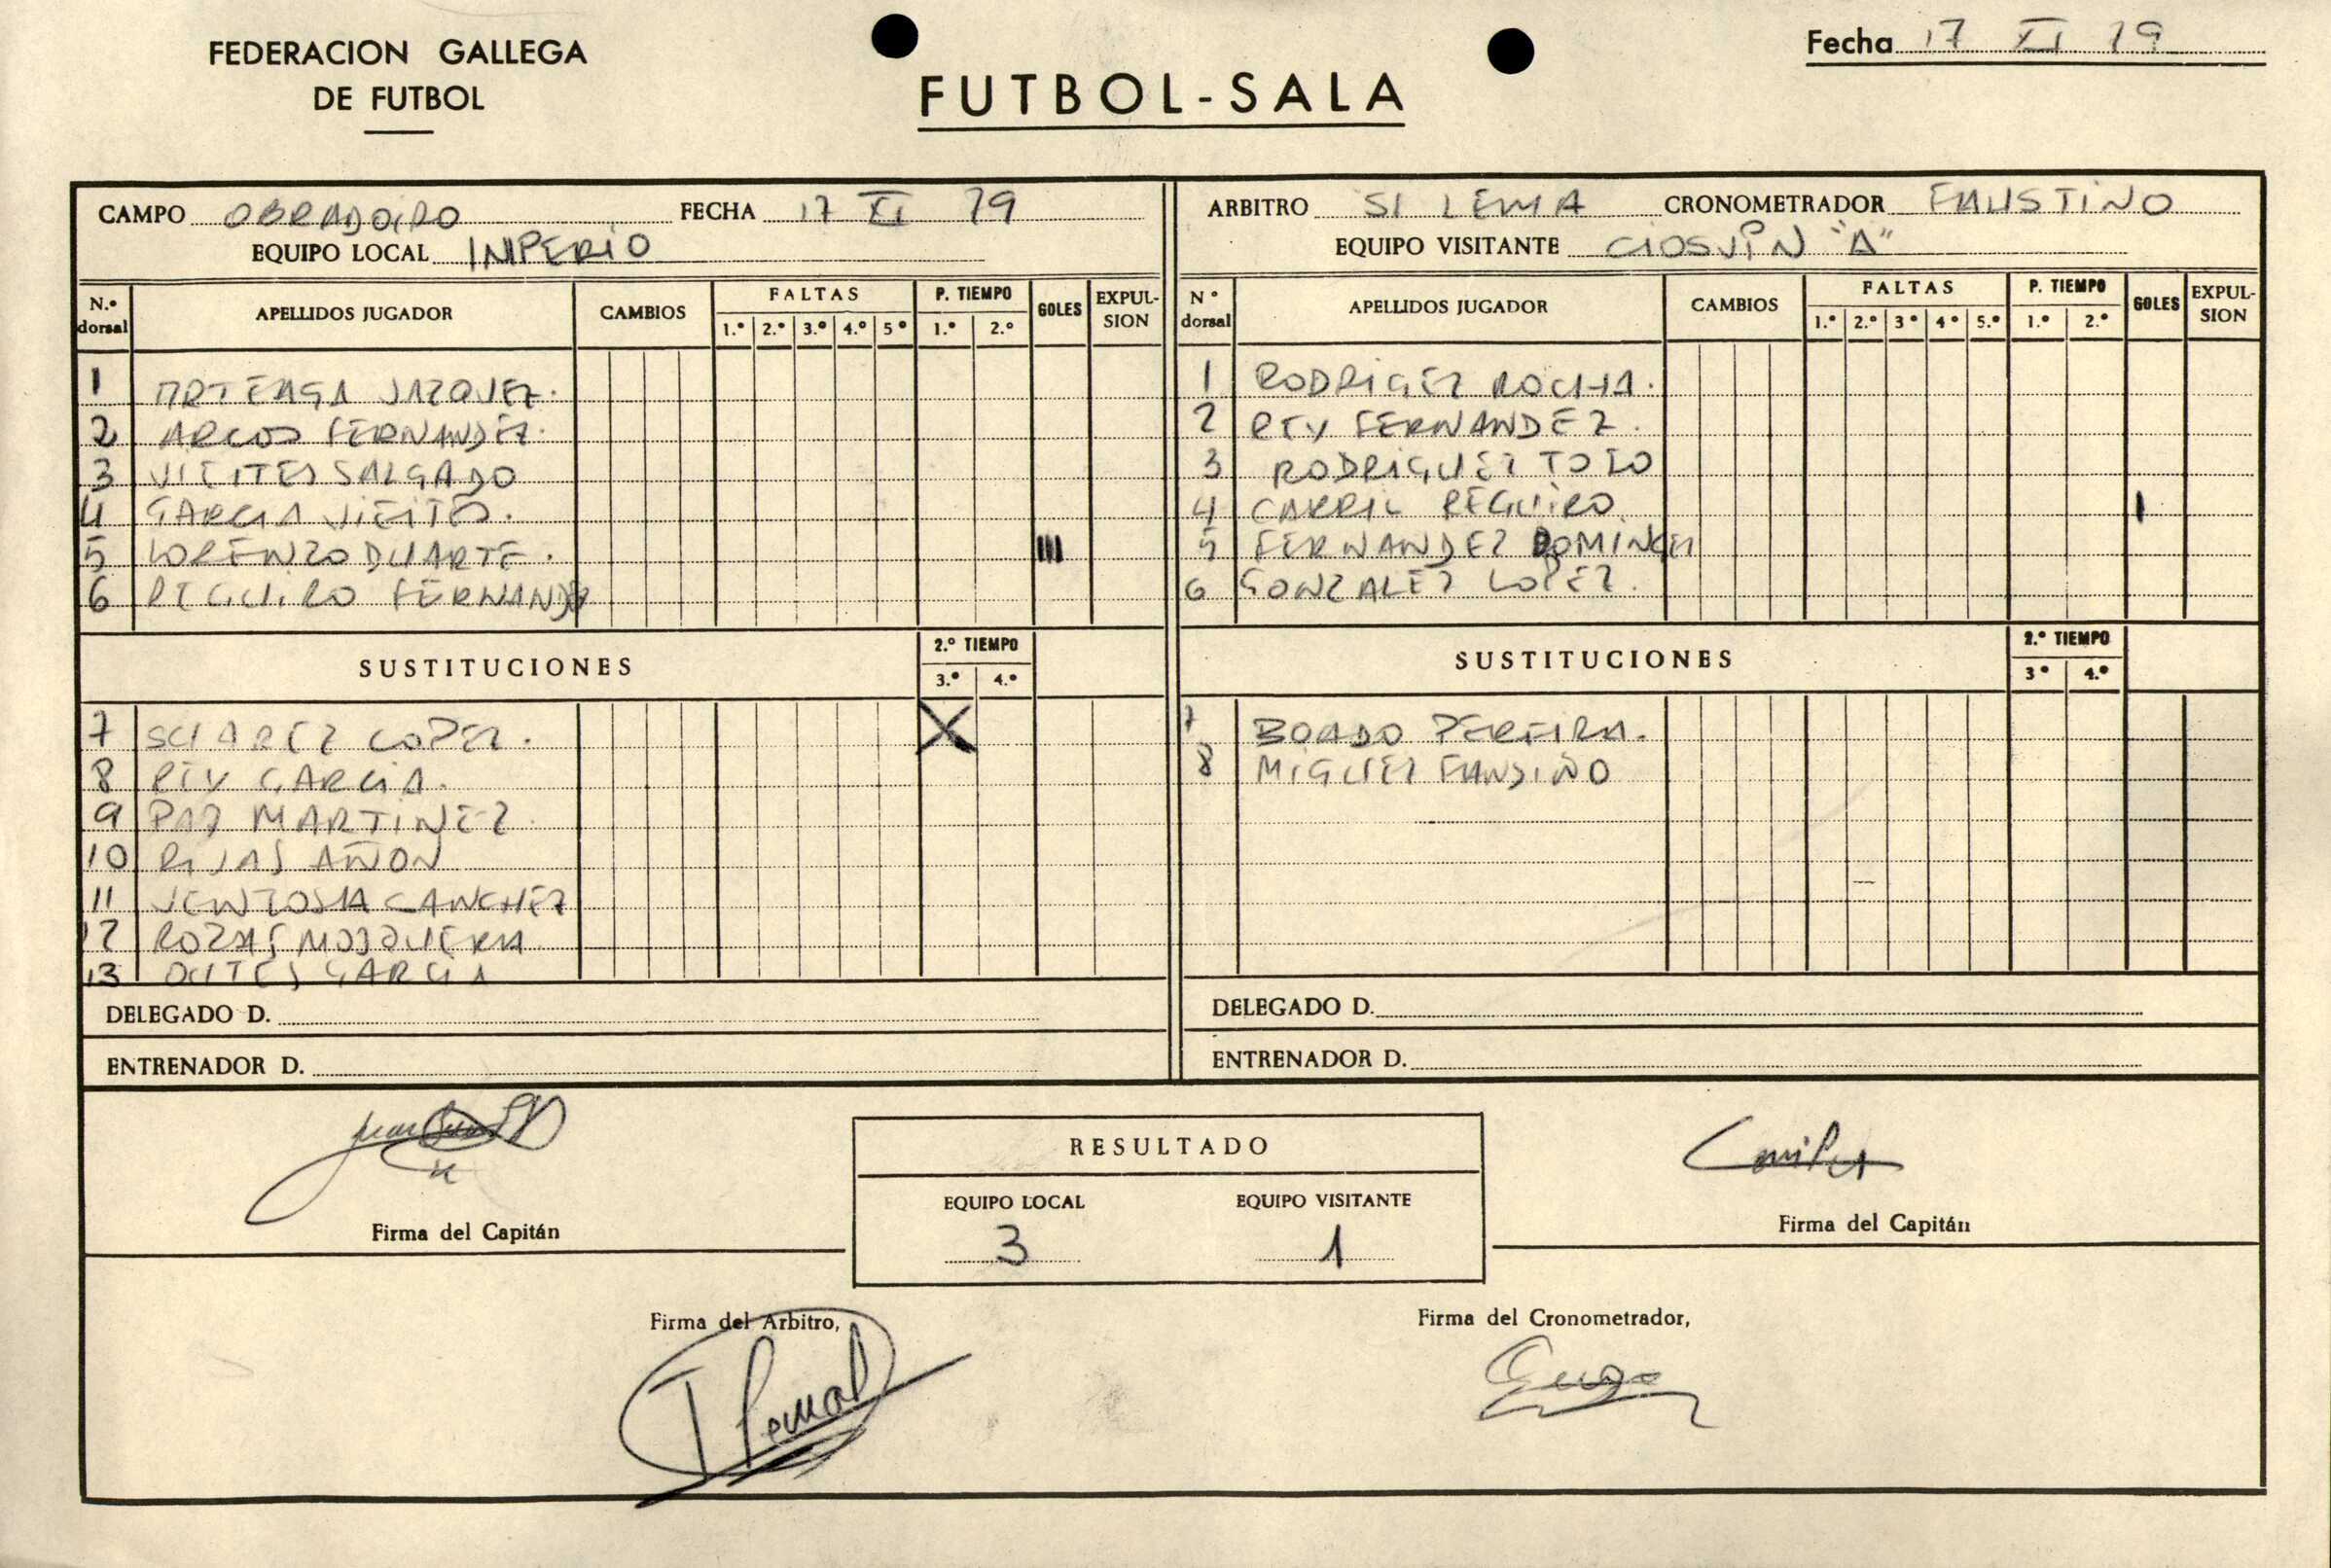 FEDERACION GALLEGA
DE FUTBOL
FUTBOL-SALA
Fecha 17 XI 79
CAMPO OBRADOIRO FECHA 17 XI 79
EQUIPO LOCAL IMPERIO
N.º dorsal APELLIDOS JUGADOR CAMBIOS FALTAS 1.º 2.º 3.º 4.º 5º P. TIEMPO 1.º 2.º GOLES EXPULSION
1 ARTEAGA VAZQUEZ.
2 ARCOS FERNANDEZ.
3 VIEITES SALGADO
4 GARCIA VIEITES.
5 LORENZO DUARTE. III
6 REGUIRO FERNANDEZ
SUSTITUCIONES 2.º TIEMPO 3.º 4.º
7 SUAREZ LOPEZ. X
8 REY GARCIA.
9 PAZ MARTINEZ.
10 RIVAS AÑON
11 VENTOSA SANCHEZ
12 ROZAS MOSQUERA
13 OUTES GARCIA
DELEGADO D.
ENTRENADOR D.
ARBITRO SI LEMA CRONOMETRADOR FAUSTINO
EQUIPO VISITANTE CIOSVIN "A"
Nº dorsal APELLIDOS JUGADOR CAMBIOS FALTAS 1.º 2.º 3º 4º 5.º P. TIEMPO 1.º 2.º GOLES EXPULSION
1 RODRIGEZ ROCHA.
2 REY FERNANDEZ.
3 RODRIGUEZ TOJO
4 CARRIL REGUIRO. I
5 FERNANDEZ DOMINGEZ
6 GONZALEZ LOPEZ.
SUSTITUCIONES 2.º TIEMPO 3º 4.º
7 BOADO PEREIRA.
8 MIGUEZ FANDIÑO
DELEGADO D.
ENTRENADOR D.
Firma del Capitán
RESULTADO
EQUIPO LOCAL EQUIPO VISITANTE
3 1
Firma del Capitán
Firma del Arbitro,
Firma del Cronometrador,